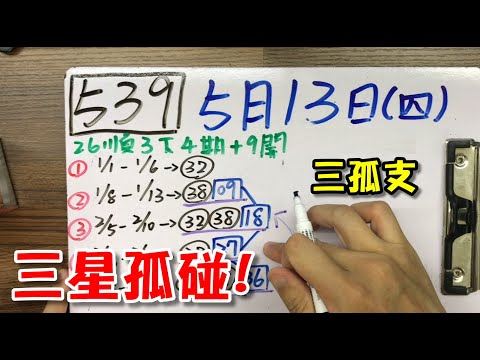 539 5月13日(四)
26順3下4期+9開
① 1/1 - 1/6 → 32
② 1/8 - 1/13 → 38 09
③ 2/5 - 2/10 → 32 38 18
三孤支
三星孤碰!